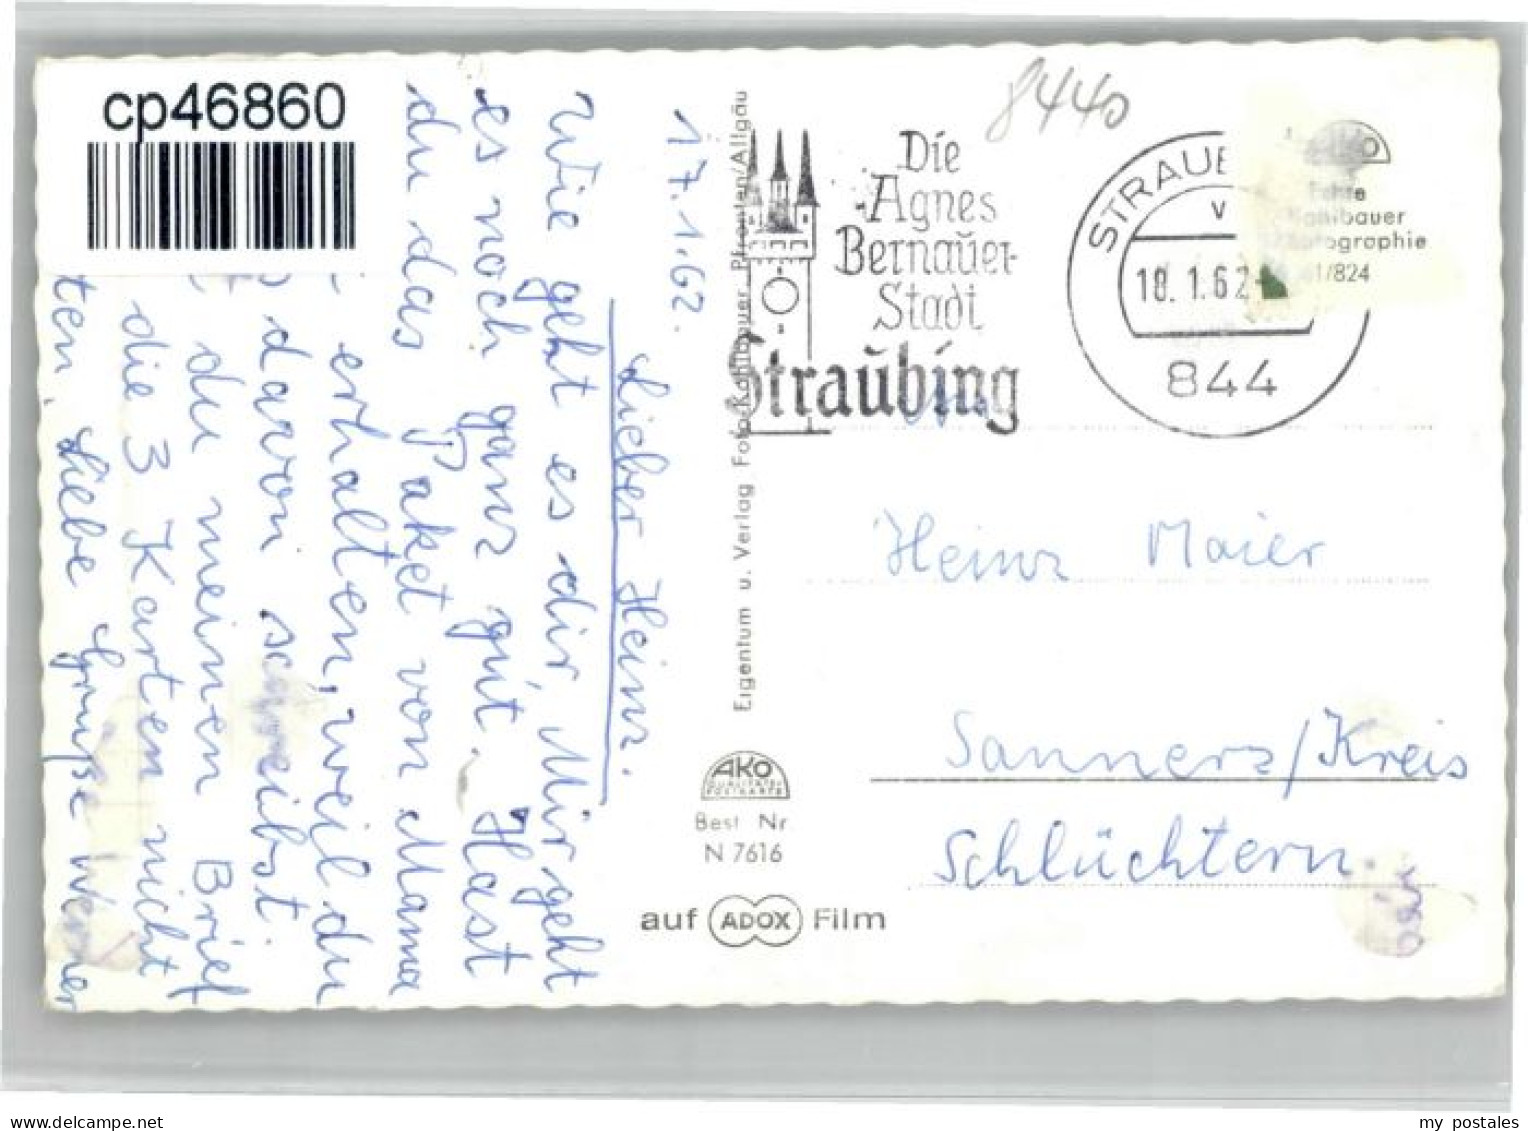 cp46860
17.1.62.
Lieber Heinz.
Wie geht es dir, Mir geht
es noch ganz gut. Hast
du das Paket von Mama
erhalten, weil du
davon schreibst.
du meinen Brief
die 3 Karten nicht
ten, Liebe Grüsse Werner
Eigentum u. Verlag Foto-Kohlbauer Pfronten/Allgäu
AKO
QUALITÄTS
POSTKARTE
Best Nr
N 7616
auf ADOX Film
8440
Die
Agnes
Bernauer-
Stadt
Straubing
STRAUB
18.1.62
844
Echte
Kohlbauer
Photographie
61/824
Heinz Maier
Sannerz/Kreis
Schlüchtern.
my postales